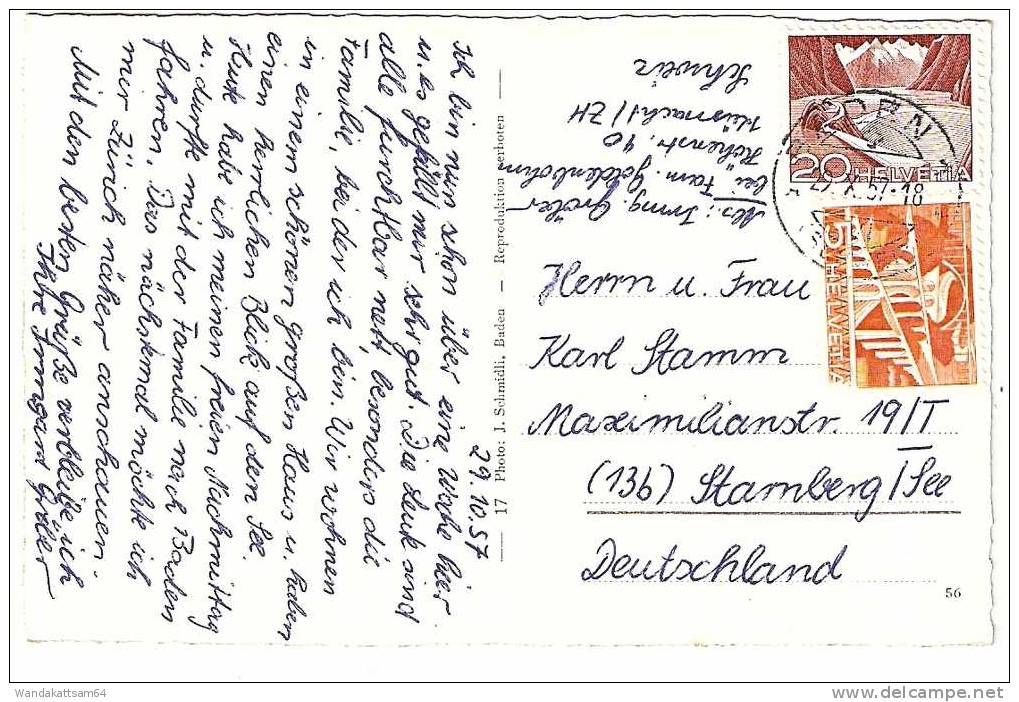 29.10.57
Ich bin nun schon über eine Woche hier
u. es gefällt mir sehr gut. Die Leute sind
alle furchtbar nett, besonders die
Familie, bei der ich bin. Wir wohnen
in einem schönen großen Haus u. haben
einen herrlichen Blick auf den See.
Heute habe ich meinen freien Nachmittag
u. durfte mit der Familie nach Baden
fahren. Das nächstemal möchte ich
mir Zürich näher anschauen.
Mit den besten Grüßen verbleibe ich
Ihre Irmgard Gröber
17 Photo: J. Schmidli, Baden – Reproduktion verboten
Abs.: Irmg. Gröber
bei Fam. Goldenbohm
Höhenstr. 40
Küsnacht/ZH
Schweiz
20 HELVETIA
5 HELVETIA
Herrn u. Frau
Karl Stamm
Maximilianstr. 19/I
(13b) Starnberg/See
Deutschland
56
Wandakattsam64
www.delcampe.net